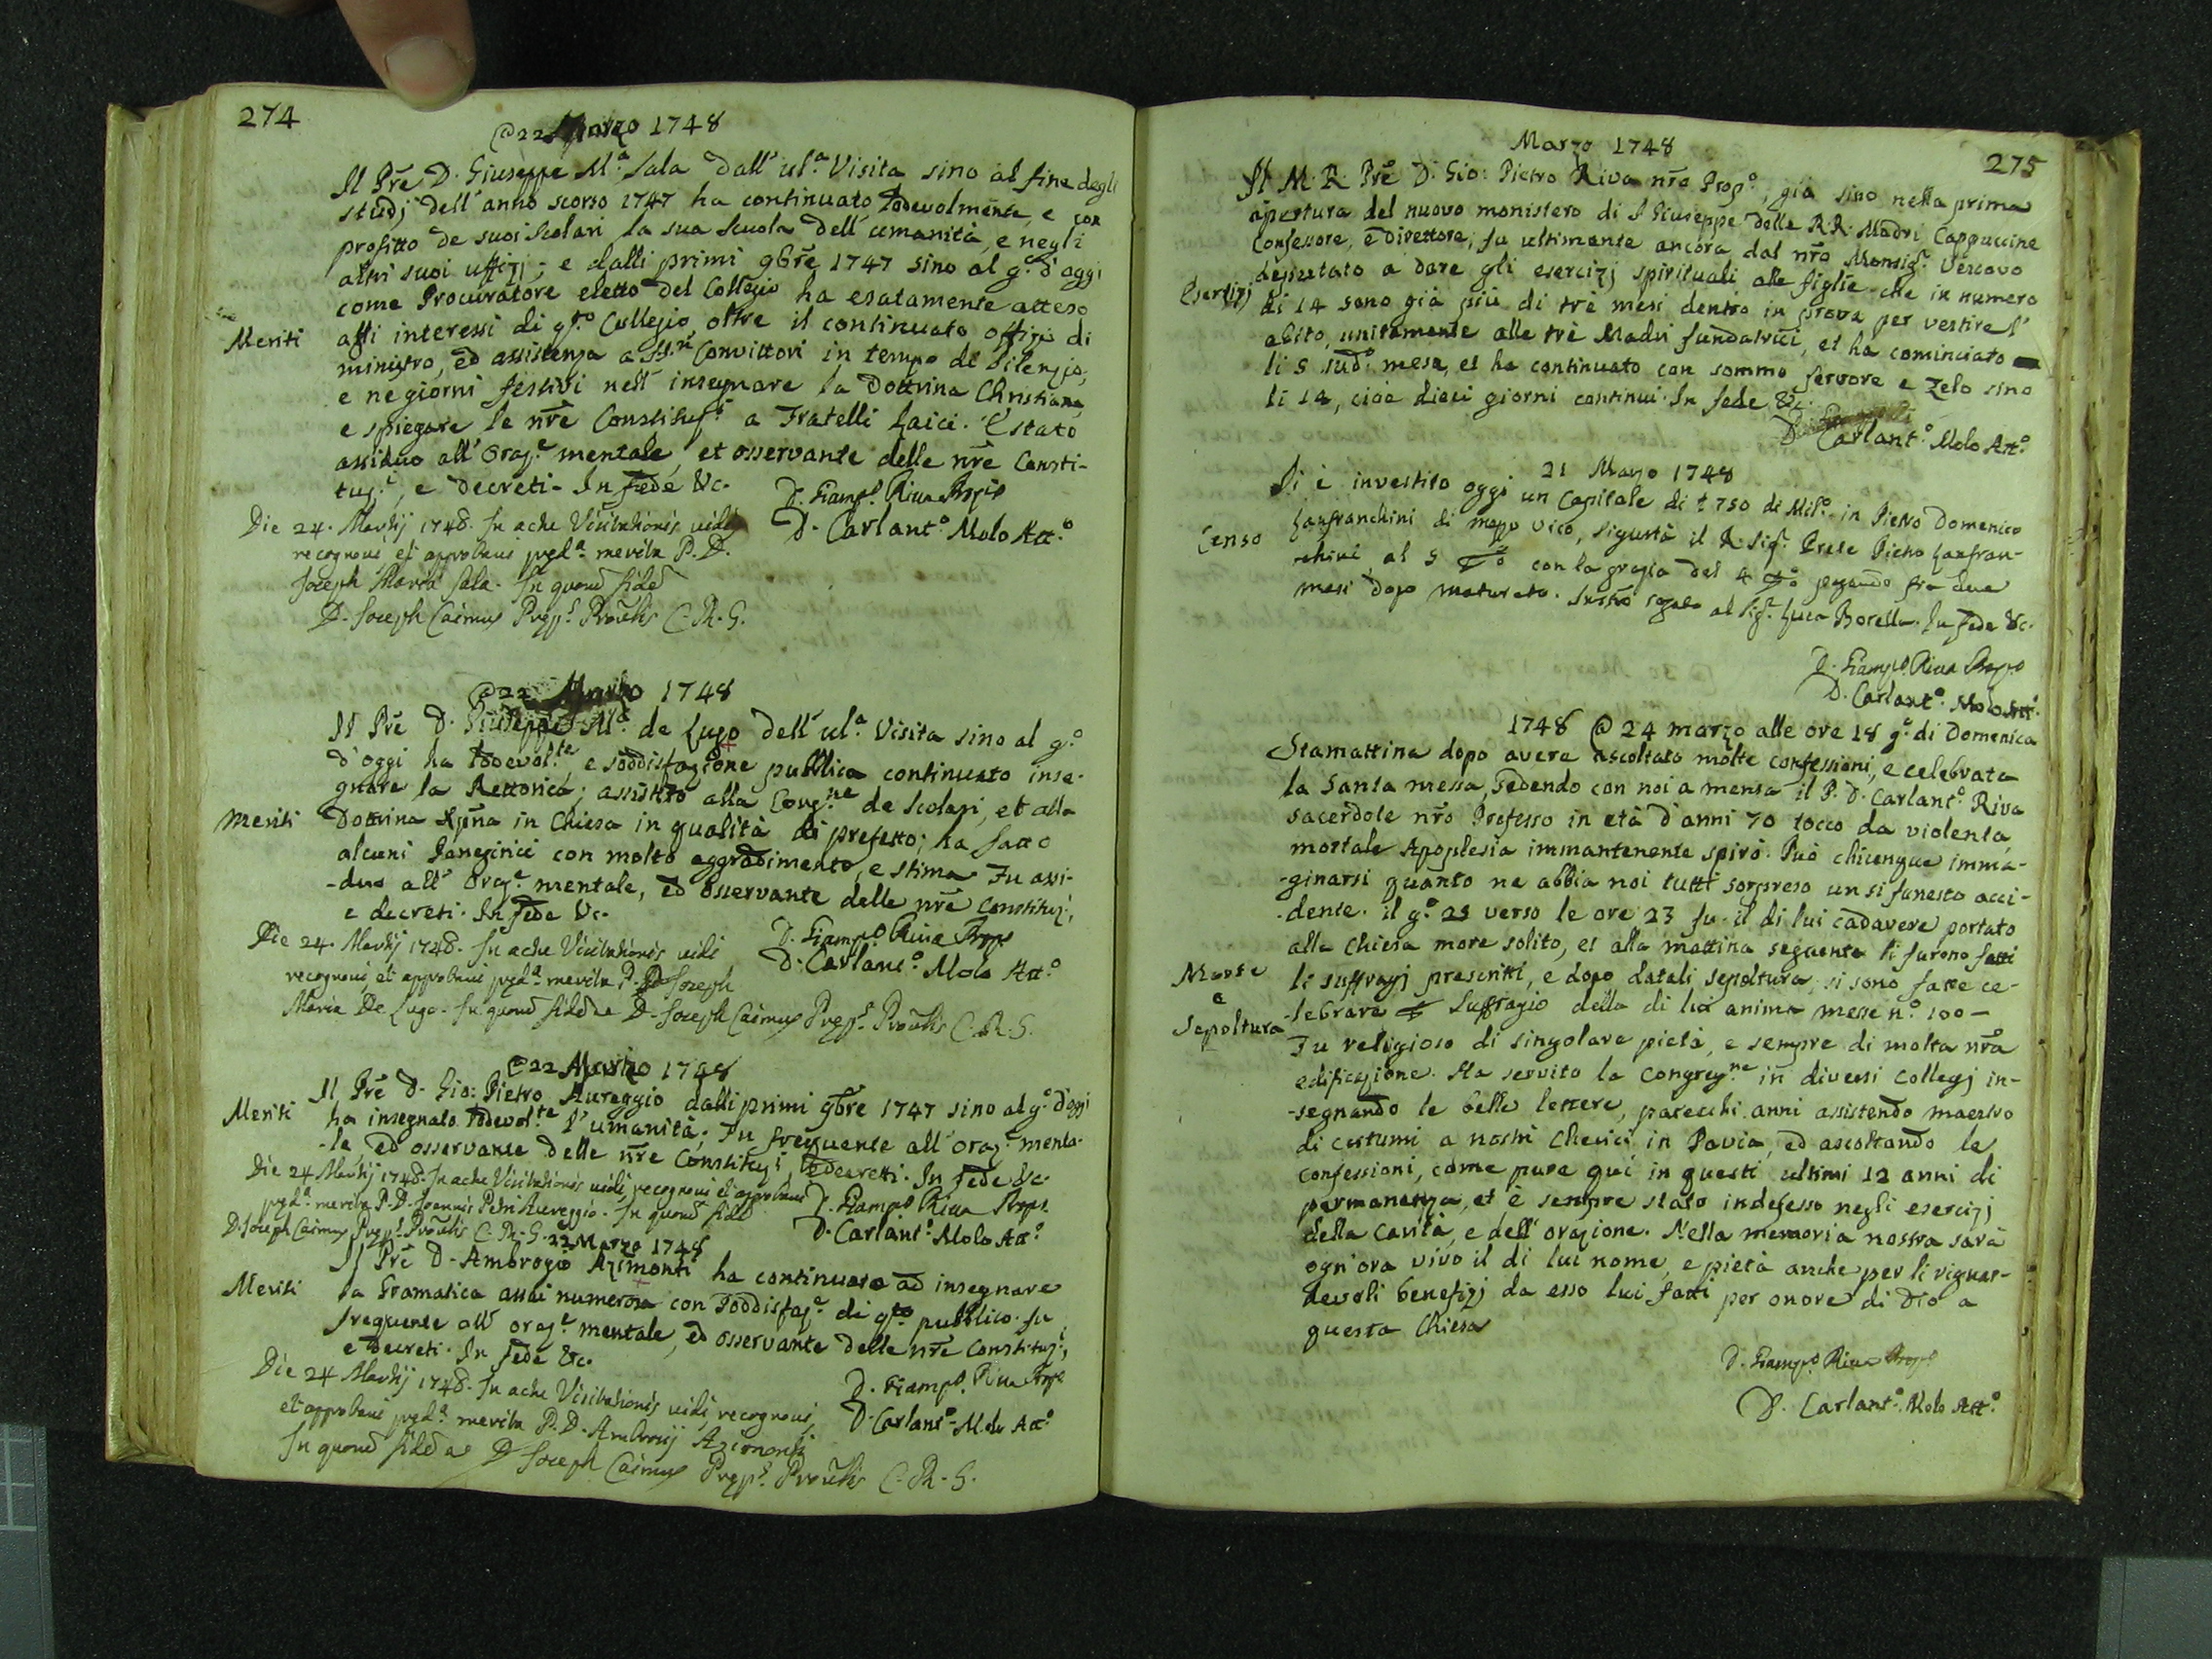 274
@ 22 Marzo 1748
Il Prẽ D. Giuseppe M.ª Sala dall' ul.ª Visita sino al fine degli
studj dell' anno scorso 1747 ha continuato lodevolmente, e con
profitto de suoi Scolari la sua Scuola dell' umanità, e negli
altri suoi uffizj; e dalli primi 9brẽ 1747 sino al g.º d'oggi
come Procuratore eletto del Collegio ha esatamente atteso
Meriti
alli interessi di q.to Collegio, oltre il continuato offizio di
ministro, ed assistenza a SS.ri Convittori in tempo di silenzio,
e ne giorni festivi nell' insegnare la Dottrina Christiana,
e spiegare le nrẽ Constituz.i a Fratelli Laici. È stato
assiduo all' Oraz.e mentale, et osservante delle nrẽ Consti-
tuz.i, e decreti. In fede &c.
D. Giamp.º Riva Prep.to
D. Carlant.º Molo Att.º
Die 24. Martij 1748. In actu Visitationis vidi,
recognovi, et approbavi præd.ª merita P. D.
Joseph Maria Sala. In quorũ fidẽ
D. Joseph Caimus Præp.s Prov̄lis C. R. S.
@ 22 Marzo 1748
Il Prẽ D. Giuseppe M.ª de Lugo dell' ul.ª Visita sino al g.º
d'oggi ha lodevol.te e soddisfazione pubblica continuato inse-
gnare la Rettorica; assistito alla Cong.ne de Scolari, et alla
Meriti
Dottrina Xp̃na in Chiesa in qualità di prefetto; ha fatto
alcuni Panegirici con molto aggradimento, e stima. Fu assi-
-duo all' Oraz.e mentale, ed osservante delle nrẽ Constituz.i,
e decreti. In fede &c.
D. Giamp.º Riva Prep.
D. Carlant.º Molo Att.º
Die 24. Martij 1748. In actu Visitationis vidi,
recognovi, et approbavi præd.ª merita P. D. Joseph
Maria De Lugo. In quorũ fidẽ D. Joseph Caimus Præp.s Prov̄lis C. R. S.
@ 22 Marzo 1748
Il Prẽ D. Gio: Pietro Aureggio dalli primi 9bre 1747 sino al g.º d'oggi
Meriti
ha insegnato lodevol.te l'umanità; Fu frequente all' oraz.e menta-
-le, ed osservante delle nrẽ Constituz.i, e decretti. In fede &c.
Die 24 Martij 1748. In actu Visitationis vidi, recognovi et approbavi
præd.ª merita P. D. Joannis Petri Aureggio. In quorũ fidẽ
D. Giamp.º Riva Prep.
D. Joseph Caimus Præp.s Prov̄lis C. R. S.
D. Carlant.º Molo Att.º
22 Marzo 1748
Il Prẽ D. Ambrogio Azimonti ha continuato ad insegnare
Meriti
la Gramatica assai numerosa con soddisfaz.e di q.to pubblico. fu
frequente all' oraz.e mentale, ed osservante delle nrẽ Constituz.i,
e decreti. In fede &c.
D. Giamp.º Riva Prep.
D. Carlant.º Molo Att.º
Die 24 Martij 1748. In actu Visitationis vidi, recognovi,
et approbavi præd.ª merita P. D. Ambrosij Azimonti
In quorũ fidẽ D. Joseph Caimus Præp.s Prov̄lis C. R. S.
275
Marzo 1748
Il M. R. Prẽ D. Gio: Pietro Riva nrõ Prop.º, già sino nella prima
apertura del nuovo monistero di S Giuseppe delle R.R. Madri Cappuccine
Confessore, e Direttore, fu ultimente ancora dal nrõ Monsig.r Vescovo
Esercizj
deputato a dare gli esercizj spirituali alle figlie che in numero
di 14 sono già più di trè mesi dentro in prova per vestire l'
abito, unitamente alle trè Madri fundatrici, et ha cominciato
li 5 sud.º mese, et ha continuato con sommo fervore e zelo sino
li 14, cioè dieci giorni continui. In fede &c.
D. Carlant.º Molo Att.º
21 Marzo 1748
Si è investito oggi un Capitale di £ 750 di Mil.º in Pietro Domenico
Censo
Lanfranchini di mezzo Vico, sigurtà il R. Sig.r Prete Pietro Lanfran-
chini, al 5 con la grazia del 4 pagando frà due
mesi dopo maturato. al Sig.r Luca Borella. In fede &c.
D. Giamp.º Riva Prep.to
D. Carlant.º Molo Att.º
1748 @ 24 marzo alle ore 18 g.º di Domenica
Stamattina dopo avere ascoltato molte confessioni, e celebrata
la Santa messa, sedendo con noi a mensa il P. D. Carlant.º Riva
sacerdote nrõ Professo in età d'anni 70 tocco da violenta,
mortale Apoplesia immantenente spirò. Può chiunque imma-
-ginarsi quanto ne abbia noi tutti sorpreso un si funesto acci-
-dente. il g.º 25 verso le ore 23 fu il di lui cadavere portato
alla Chiesa more solito, et alla mattina seguente li furono fatti
Morte
e
Sepoltura
li suffragj prescritti, e dopo datali sepoltura, si sono fatte ce-
-lebrare p suffragio della di lui anima messe n.º 100 -
Fu religioso di singolare pietà, e sempre di molta nrã
edificazione. Ha servito la congreg.ne in diversi collegj in-
-segnando le belle lettere, parecchi anni assistendo maestro
di costumi a nostri Chierici in Pavia, ed ascoltando le
confessioni, come pure qui in questi ultimi 12 anni di
permanenza, et è sempre stato indefesso negli esercizj
della Carità, e dell' orazione. Nella memoria nostra sarà
ogn'ora vivo il di lui nome, e pietà anche per li riguar-
devoli benefizj da esso lui fatti per onore di Dio a
questa Chiesa
D. Giamp.º Riva Prep.to
D. Carlant.º Molo Att.º